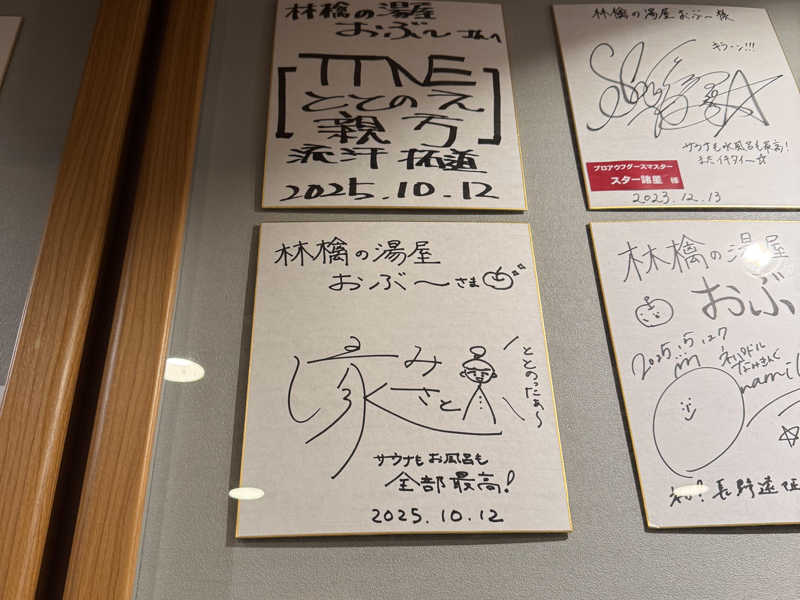 林檎の湯屋
おぶ〜さんへ
TTNE
ととのえ
親方
2025.10.12
林檎の湯屋おぶ〜様
キラーン!!!
サウナも水風呂も最高!
またイキタイ〜☆
プロアウフグースマスター
スター諸星 様
2023.12.13
林檎の湯屋
おぶ〜さま
みさと
ととのったぁ〜
サウナもお風呂も
全部最高!
2025.10.12
林檎の湯屋
おぶ
2025.5.27
nami
長野遠征